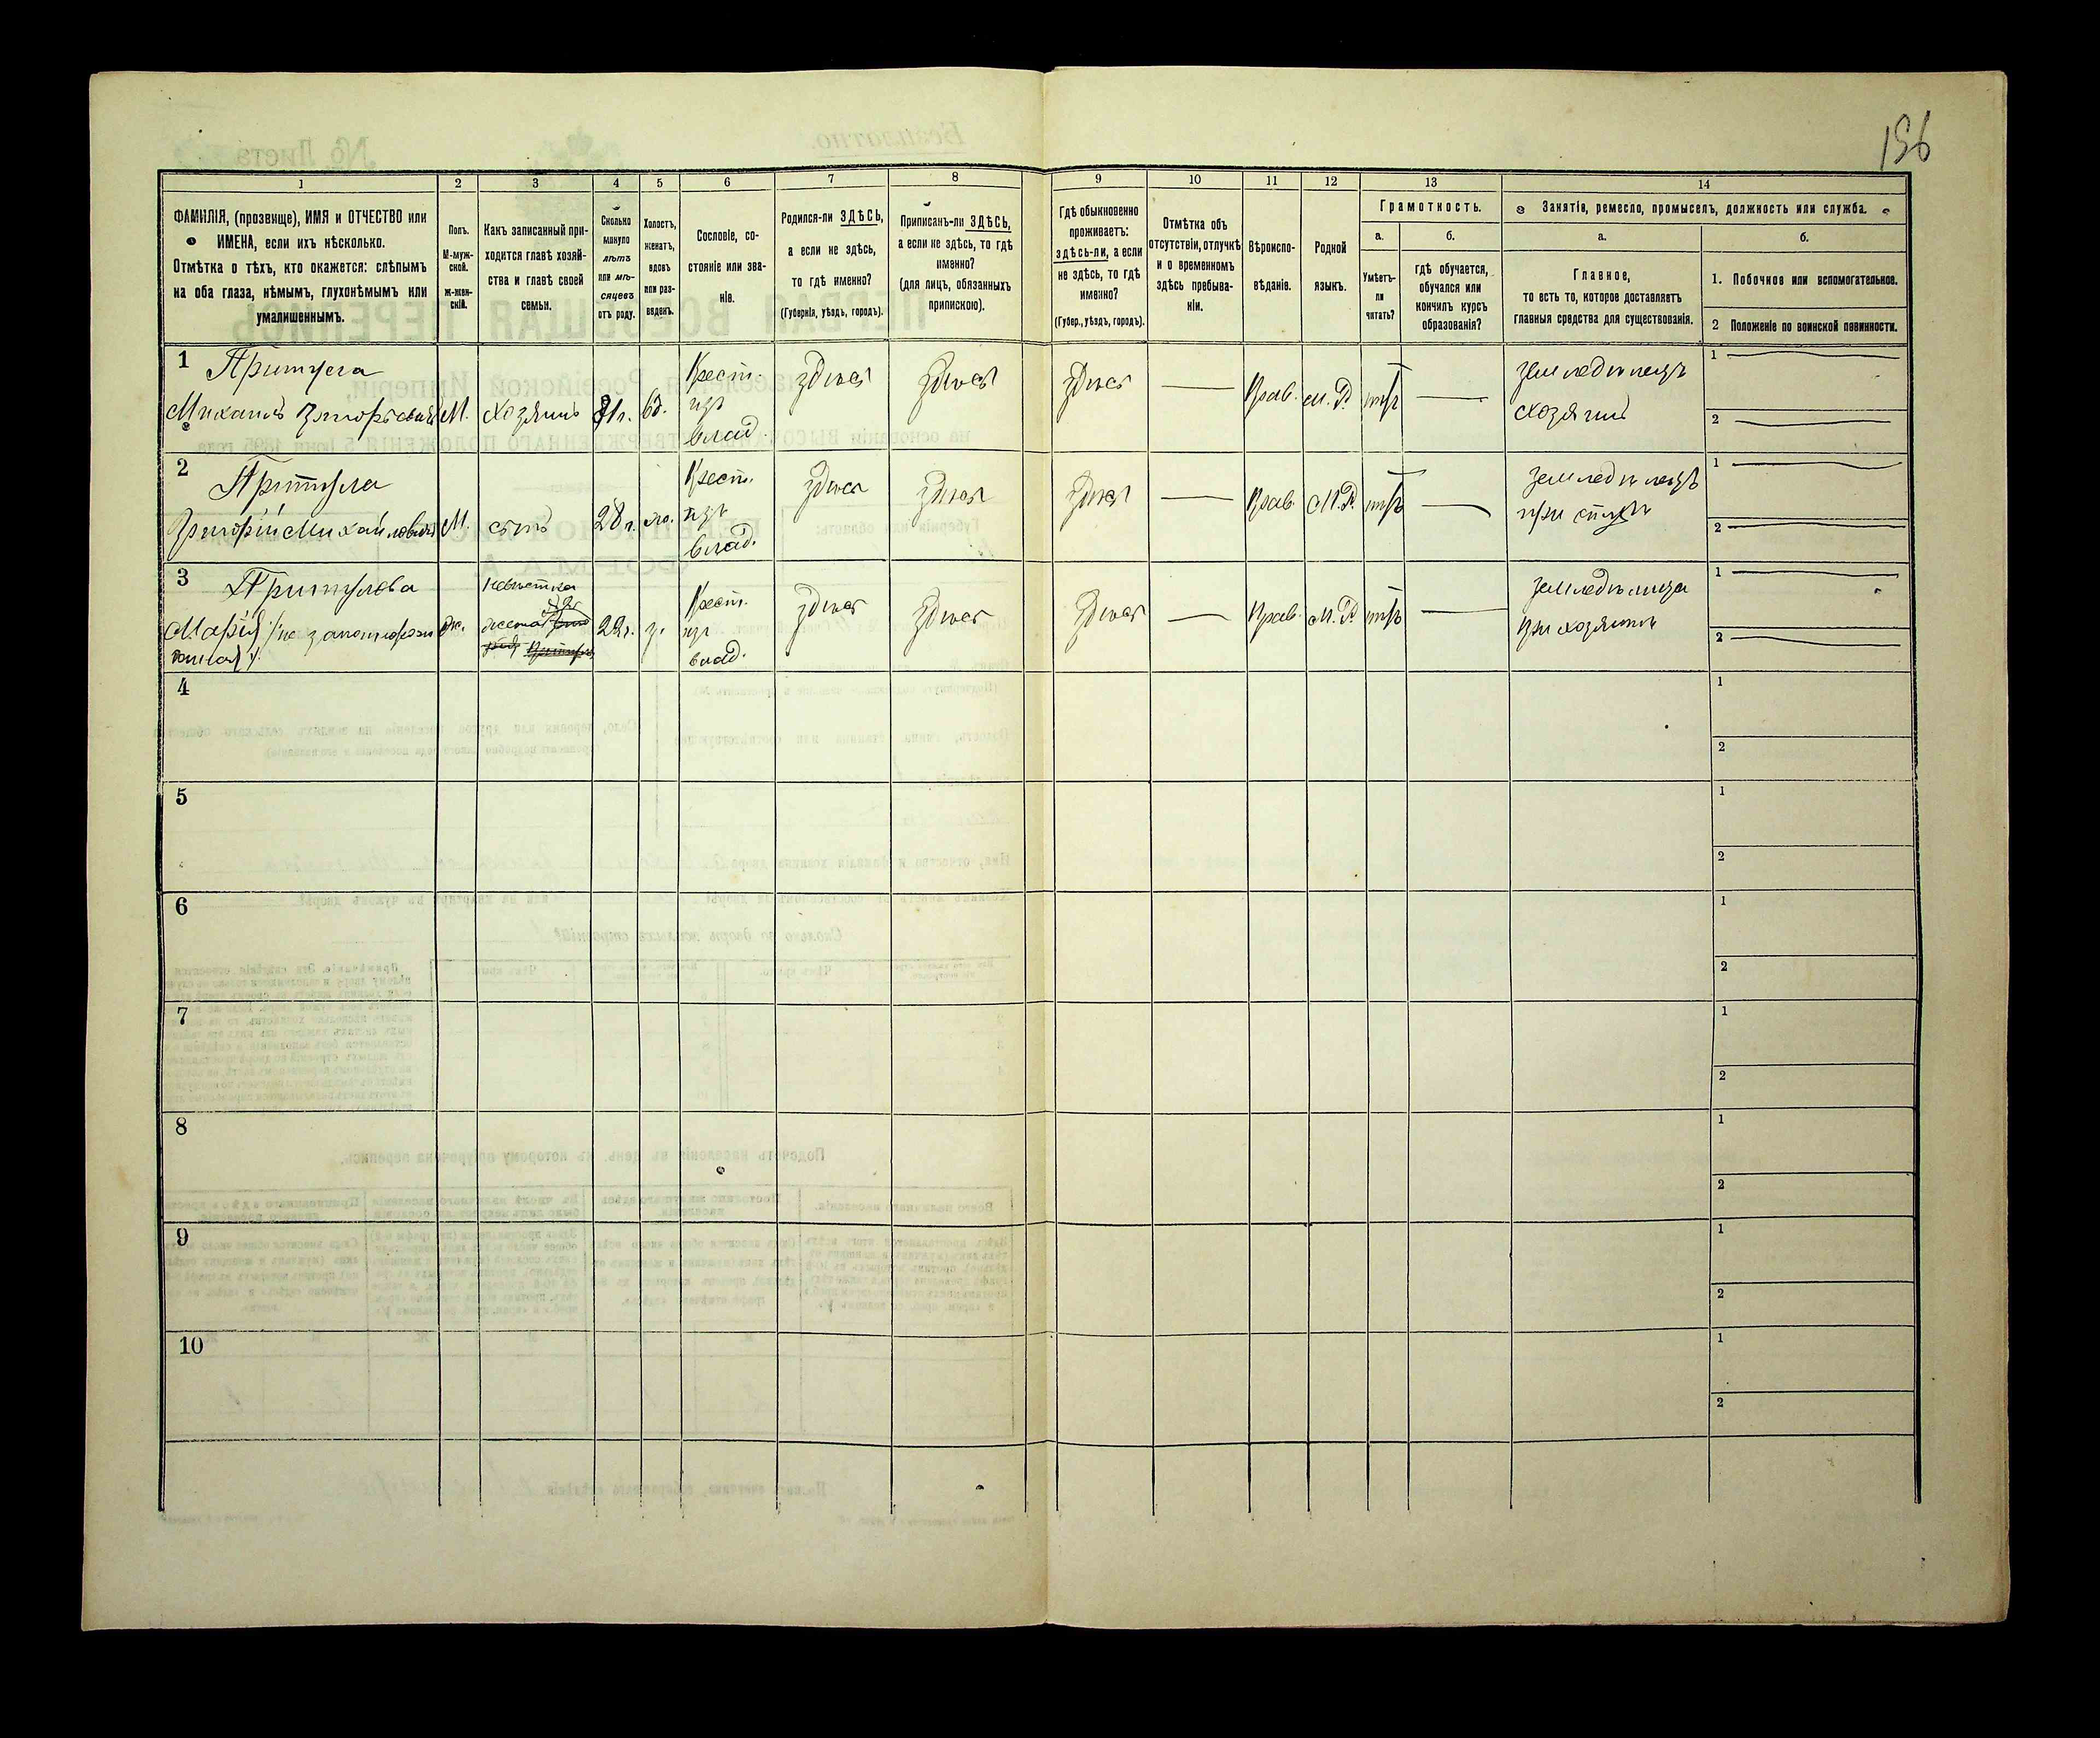 196
1 2 3 4 5 6 7 8 9 10 11 12 13 14
ФАМИЛІЯ, (прозвище), ИМЯ и ОТЧЕСТВО или
ИМЕНА, если ихъ нѣсколько.
Отмѣтка о тѣхъ, кто окажется: слѣпымъ
на оба глаза, нѣмымъ, глухонѣмымъ или
умалишеннымъ.
Полъ.
М-муж-
ской.
ж-жен-
скій.
Какъ записанный при-
ходится главѣ хозяй-
ства и главѣ своей
семьи.
Сколько
минуло
лѣтъ
или мѣ-
сяцевъ
отъ роду.
Холостъ,
женатъ,
вдовъ
или раз-
веденъ.
Сословіе, со-
стояніе или зва-
ніе.
Родился-ли ЗДѢСЬ,
а если не здѣсь,
то гдѣ именно?
(Губернія, уѣздъ, городъ).
Приписанъ-ли ЗДѢСЬ,
а если не здѣсь, то гдѣ
именно?
(для лицъ, обязанныхъ
припискою).
Гдѣ обыкновенно
проживаетъ:
здѣсь-ли, а если
не здѣсь, то гдѣ
именно?
(Губер., уѣздъ, городъ).
Отмѣтка объ
отсутствіи, отлучкѣ
и о временномъ
здѣсь пребыва-
ніи.
Вѣроиспо-
вѣданіе.
Родной
языкъ.
Грамотность.
а.
Умѣетъ-
ли
читать?
б.
гдѣ обучается,
обучался или
кончилъ курсъ
образованія?
Занятіе, ремесло, промыселъ, должность или служба.
а.
Главное,
то есть то, которое доставляетъ
главныя средства для существованія.
б.
1. Побочное или вспомогательное.
2 Положеніе по воинской повинности.
1 Притула
Михаилъ Григорьевичъ
М.
хозяинъ
вд.
Крест.
изъ
влад.
здѣсь
здѣсь
здѣсь
Прав.
М. Р.
нѣтъ
земледѣлецъ
хозяинъ
1
2
2 Притула
Григорій Михайловичъ
М.
сынъ
28 г.
хо.
Крест.
изъ
влад.
здѣсь
здѣсь
здѣсь
Прав.
М. Р.
нѣтъ
земледѣлецъ
при отцѣ
1
2
3 Притулова
Марія
ж.
невѣстка
22 г.
з.
Крест.
изъ
влад.
здѣсь
здѣсь
здѣсь
Прав.
М. Р.
нѣтъ
земледѣлица
при хозяинѣ
1
2
4
1
2
5
1
2
6
1
2
7
1
2
8
1
2
9
1
2
10
1
2